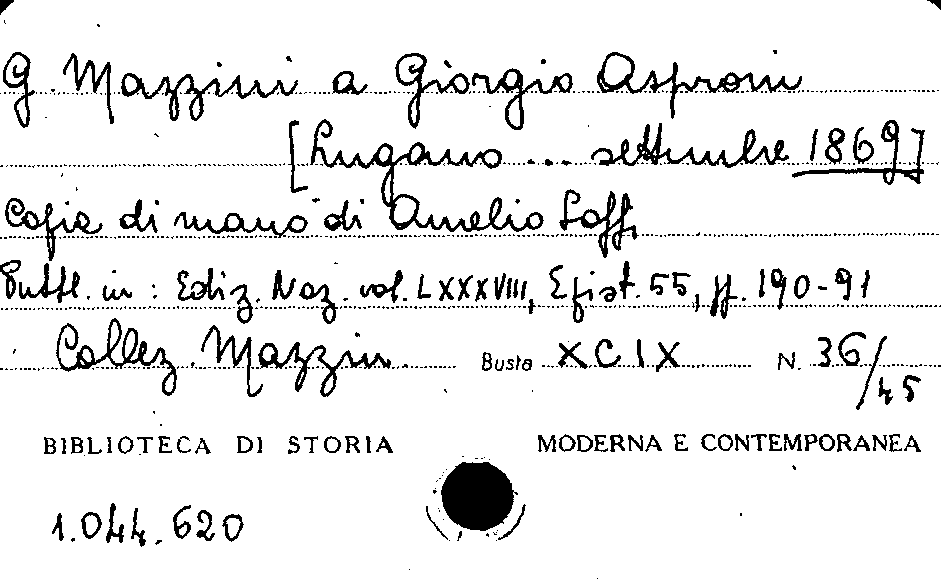 G. Mazzini a Giorgio Asproni
[Lugano ... settembre 1869]
Copia di mano di Aurelio Saffi
Pubbl. in: Ediz. Naz. vol. LXXXVIII, Epist. 55, pp. 190-91
Collez. Mazzini. Busta XCIX N. 36/45
BIBLIOTECA DI STORIA MODERNA E CONTEMPORANEA
1.044.620